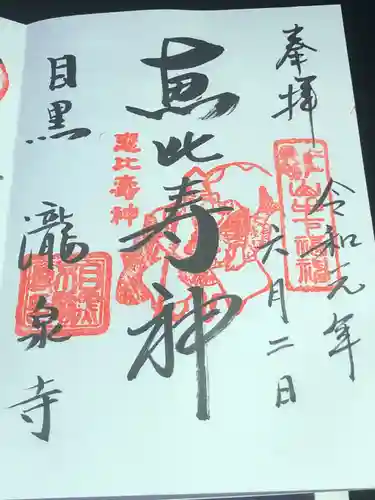 奉拝
令和元年
六月二日
恵比寿神
恵比寿神
目黒
瀧泉寺